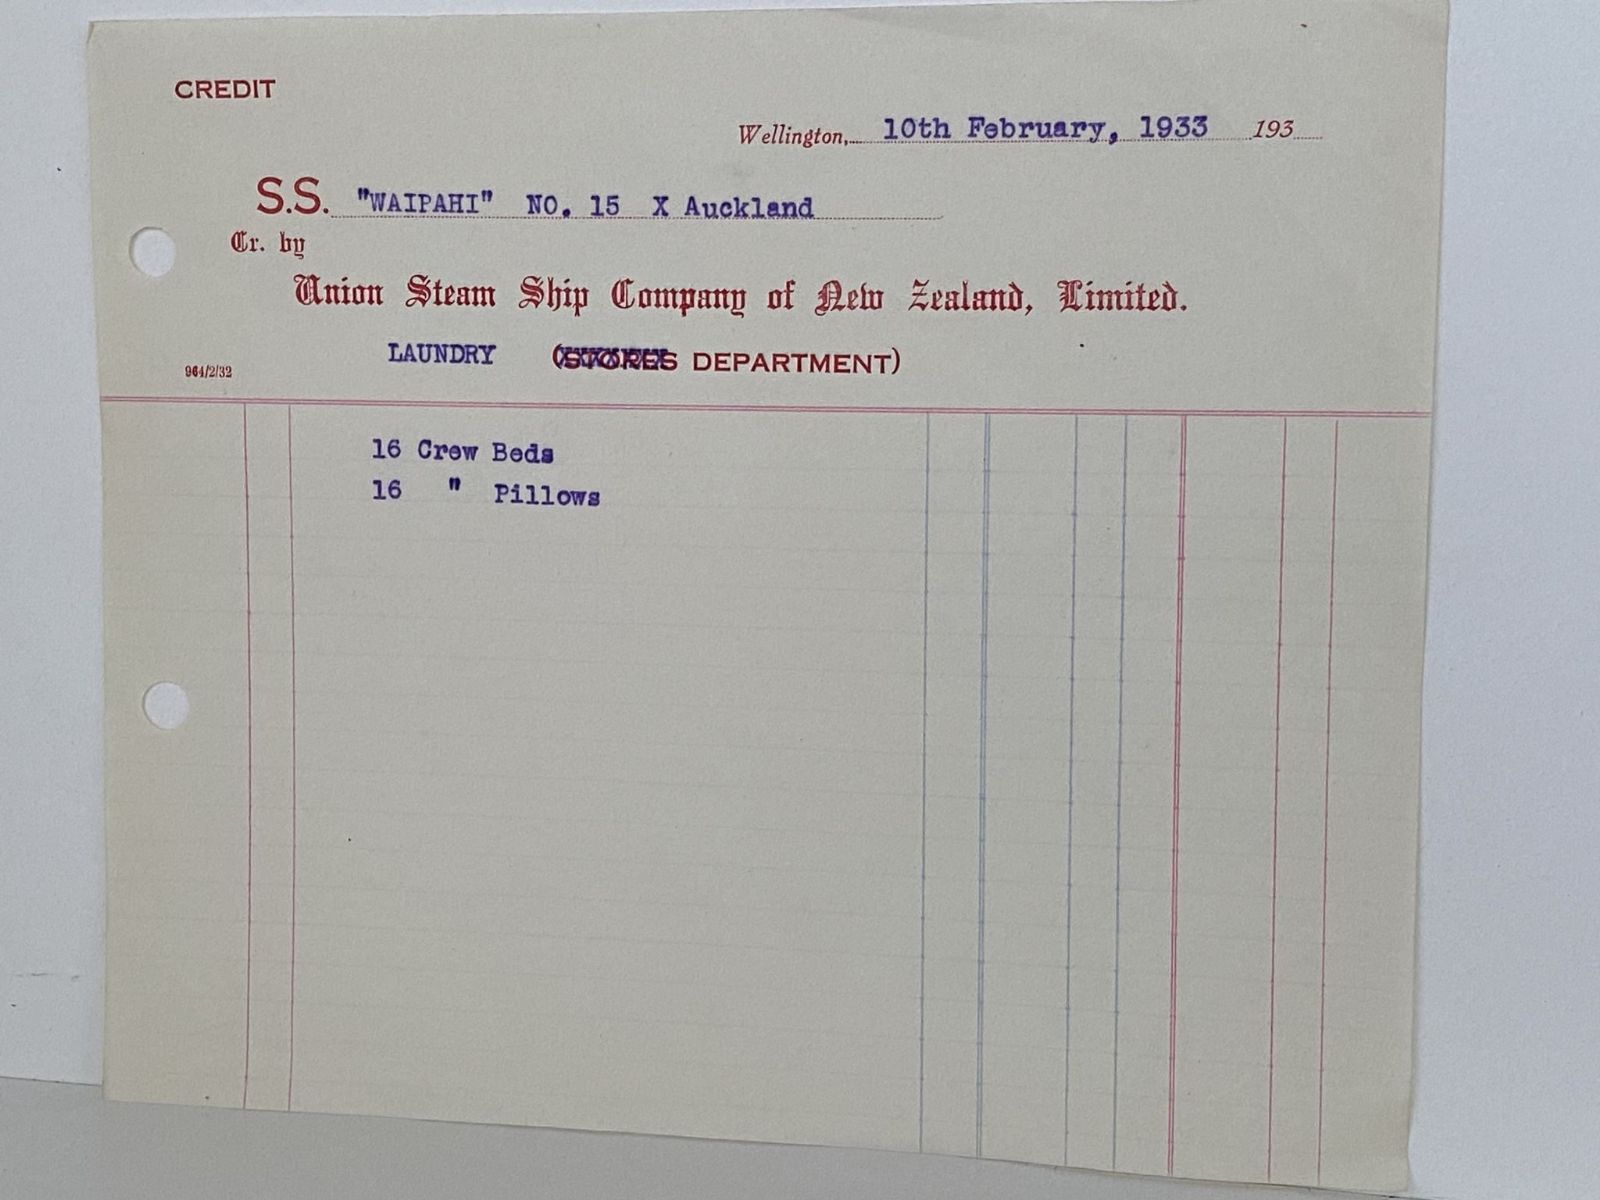 CREDIT
Wellington, 10th February, 1933 193
S.S. "WAIPAHI" NO. 15 X Auckland
Cr. by
Union Steam Ship Company of New Zealand, Limited.
LAUNDRY (STORES DEPARTMENT)
964/2/32
16 Crew Beds
16 " Pillows